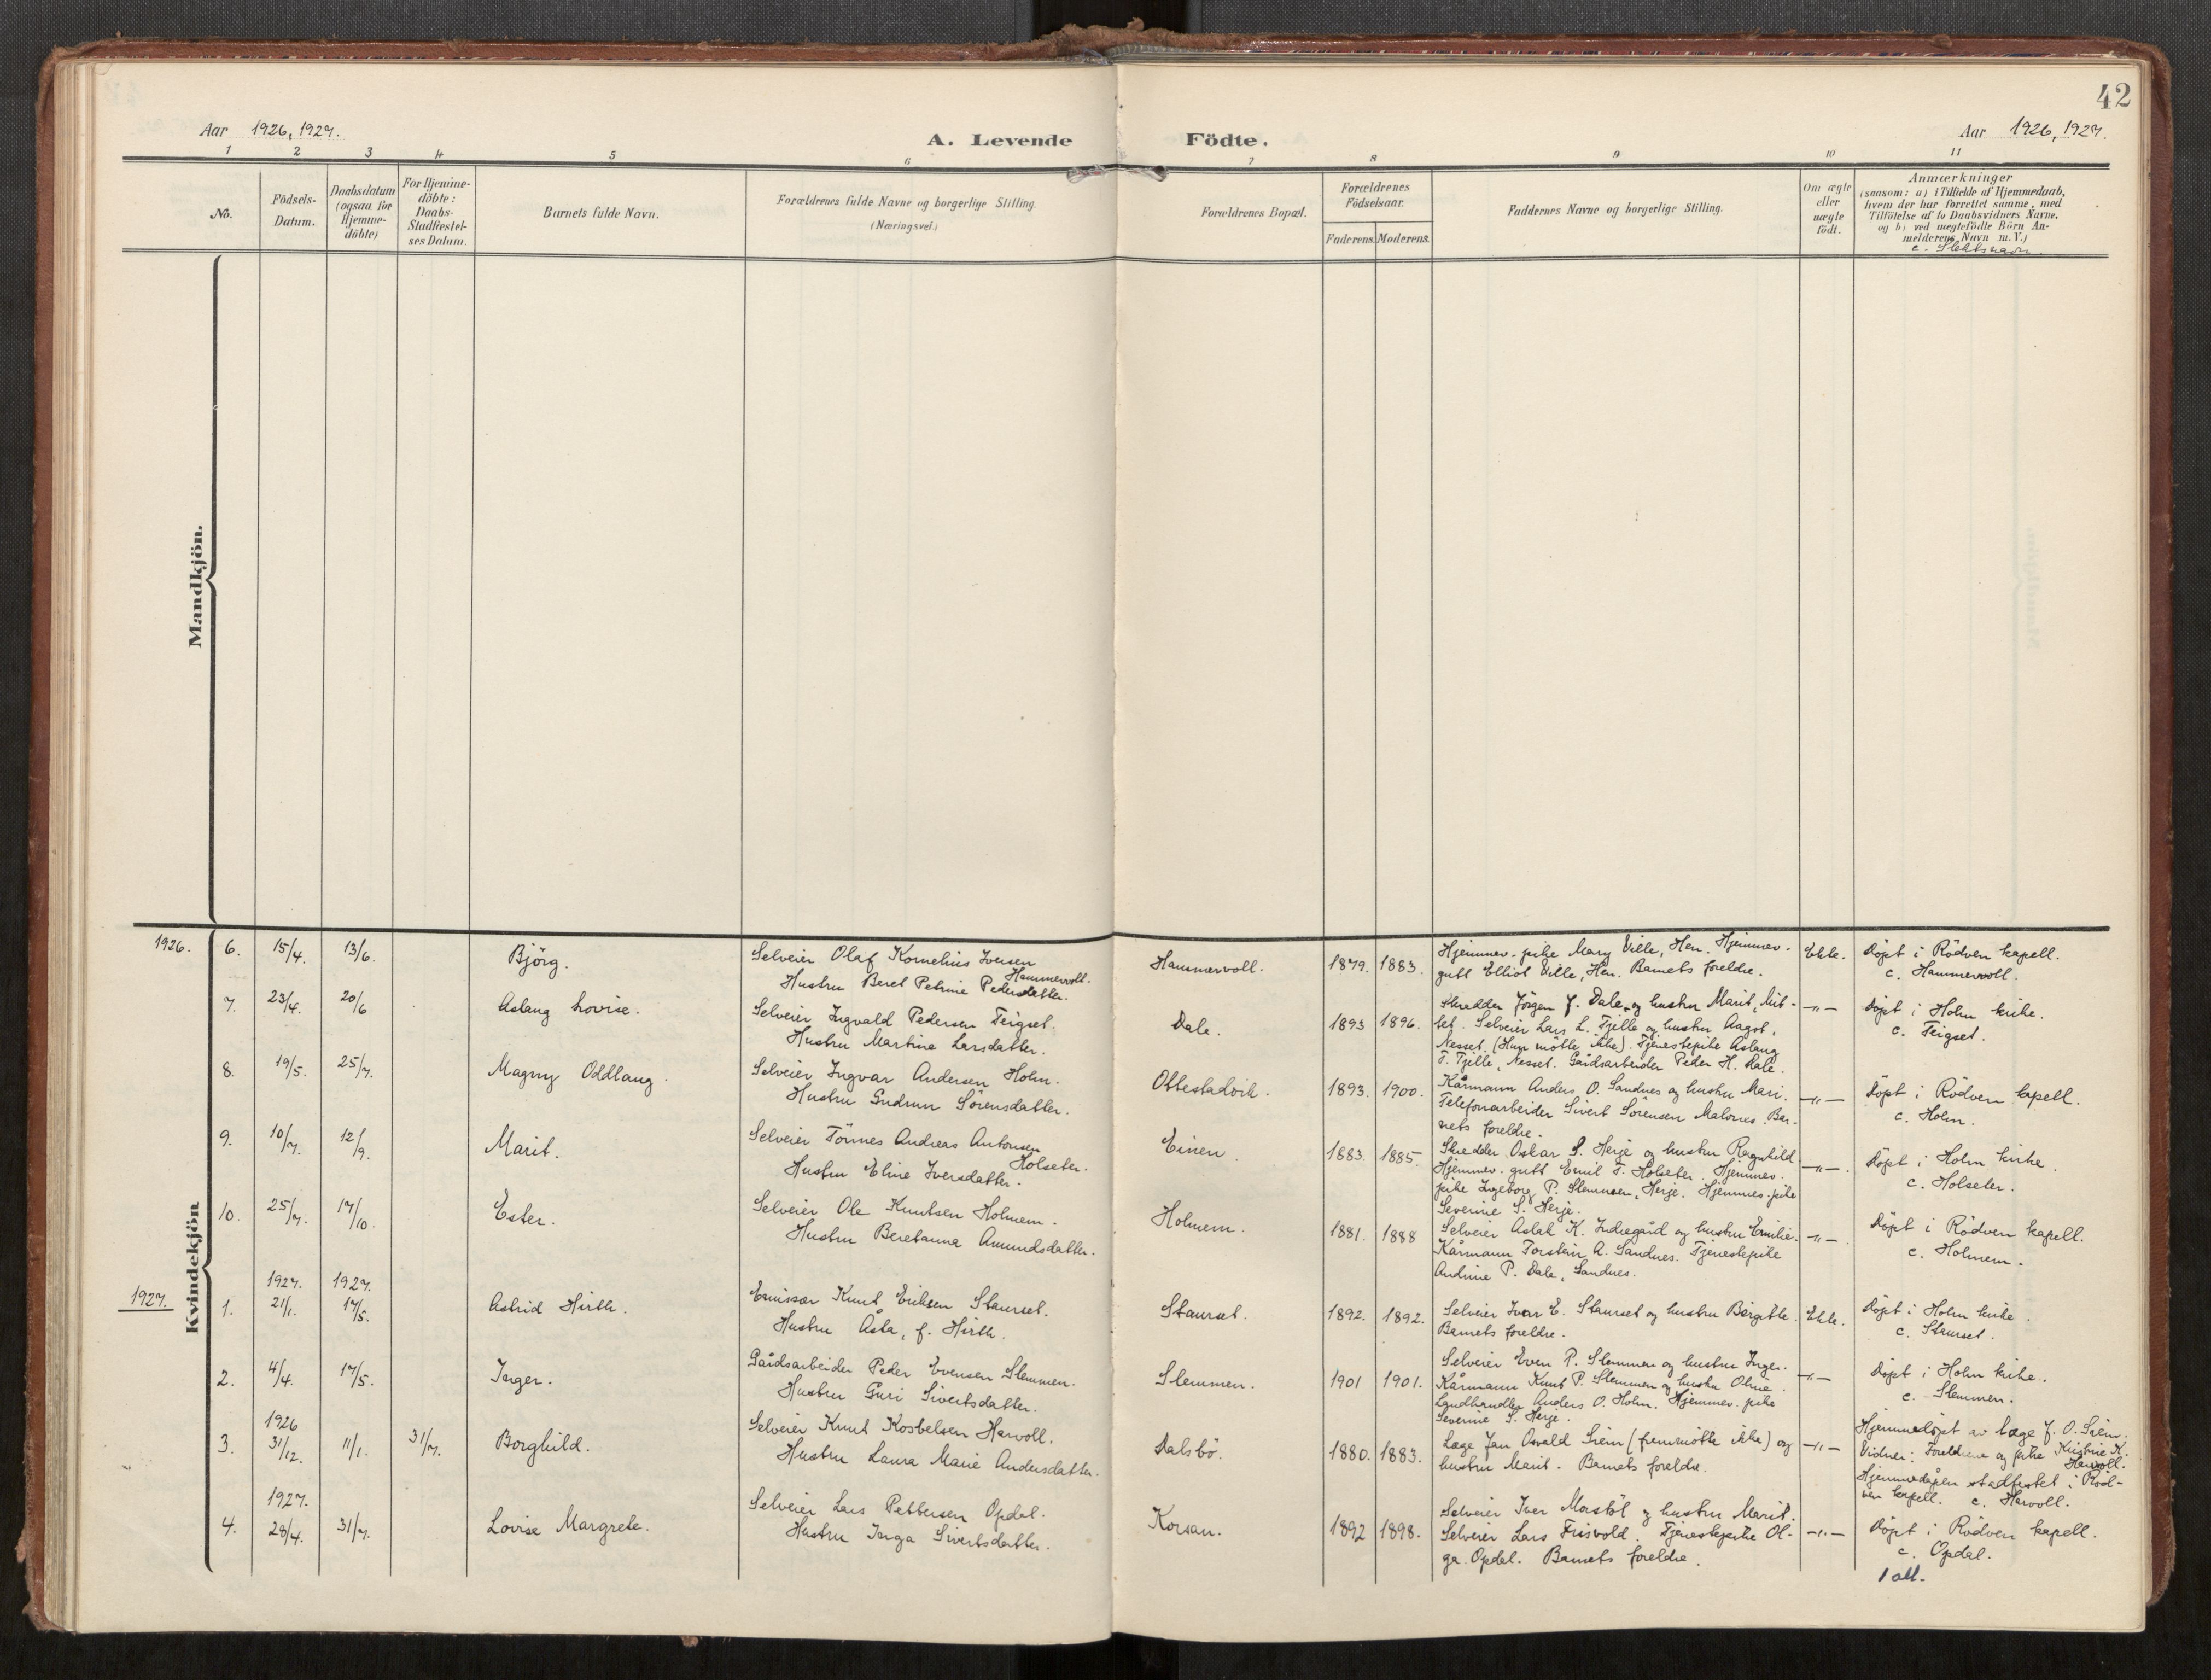 42
Aar 1926, 1927.
A. Levende Födte.
Aar 1926, 1927.
1 2 3 4 5 6 7 8 9 10 11
No.
Födsels-
Datum.
Daabsdatum
(ogsaa for
Hjemme-
döbte)
For Hjemme-
döbte:
Daabs-
Stadfæstel-
ses Datum.
Barnets fulde Navn.
Forældrenes fulde Navne og borgerlige Stilling
(Næringsvei.)
Forældrenes Bopæl.
Forældrenes
Födselsaar.
Faderens. Moderens.
Faddernes Navne og borgerlige Stilling.
Om ægte
eller
uægte
födt.
Anmærkninger
(saasom: a) i Tilfælde af Hjemmedaab,
hvem der har forrettet samme, med
Tilföielse af to Daabsvidners Navne.
og b) ved uægtefödte Börn An-
melderens Navn m. V.)
c. Slektsnavn.
Mandkjön.
Kvindekjön
1926.
6. 15/4. 13/6.
Björg.
Selveier Olaf Kornelius Iversen
Hammervoll.
Hustru Beret Petrine Pedersdatter.
Hammervoll.
1879. 1883.
Hjemmev. pike Mary Ville, Hen. Hjemmev.
gutt Elliot Ville, Hen. Barnets foreldre.
Ekte.
Döpt i Rödven kapell.
c. Hammervoll.
7. 23/4. 20/6
Aslaug Lovise.
Selveier Ingvald Pedersen Teigset.
Hustru Martine Larsdatter.
Dale.
1893 1896.
Skredder Jörgen J. Dale og hustru Marit, Mit-
tet. Selveier Lars L. Tjelle og hustru Aagot,
Nesset. (Hun mötte ikke). Tjenestepike Aslaug
T. Tjelle, Nesset. Gårdsarbeider Peder H. Dale.
-"-
Döpt i Holm kirke.
c. Teigset.
8. 19/5. 25/7.
Magny Oddlaug.
Selveier Ingvar Andersen Holm.
Hustru Gudrun Sörensdatter.
Ottestadvik.
1893. 1900.
Kårmann Anders O. Sandnes og hustru Mari.
Telefonarbeider Sivert Sörensen Malones. Bar-
nets foreldre.
-"-
Döpt i Rödven kapell.
c. Holm.
9. 10/7. 12/9.
Marit.
Selveier Tönnes Andreas Antonsen
Holseter.
Hustru Eline Iversdatter.
Einen.
1883. 1885.
Skredder Oskar S. Herje og hustru Ragnhild
Hjemmev. gutt Emil T. Holseter. Hjemmev.
pike Ingeborg P. Slemmen, Herje. Hjemmev. pike
Severine S. Herje.
-"-
Döpt i Holm kirke.
c. Holseter.
10. 25/7. 17/10.
Ester.
Selveier Ole Knutsen Holmem.
Hustru Beretanna Amundsdatter.
Holmem.
1881. 1888
Selveier Aslak K. Indregård og hustru Emilie.
Kårmann Torstein A. Sandnes. Tjenestepike
Andrine P. Dale, Sandnes.
-"-
Döpt i Rödven kapell.
c. Holmem.
1927.
1927. 1927.
1. 21/1. 17/5.
Astrid Hirth.
Emissær Knut Eriksen Staurset.
Hustru Åsta, f. Hirth.
Staurset.
1892. 1892.
Selveier Ivar E. Staurset og hustru Bergitte.
Barnets foreldre.
Ekte.
Döpt i Holm kirke.
c. Staurset.
2. 4/4. 17/5.
Inger.
Gårdsarbeider Peder Evensen Slemmen.
Hustru Guri Sivertsdatter.
Slemmen.
1901 1901.
Selveier Even P. Slemmen og hustru Inger.
Kårmann Knut P. Slemmen og hustru Oline.
Landhandler Anders O. Holm. Hjemmev. pike
Severine S. Herje.
-"-
Döpt i Holm kirke.
c. Slemmen.
1926
3. 31/12. 11/1. 31/7.
Borghild.
Selveier Knut Kosbelsen Harvoll.
Hustru Laura Marie Andersdatter.
Dalsbö.
1880. 1883.
Læge Jan Osvald Srem (fremmötte ikke) og
hustru Marit. Barnets foreldre.
-"-
Hjemmedöpt av læge J. O. Srem.
Vidner: Foreldrene og pike Kristine K.
Harvoll.
Hjemmedåpen stadfestet i Röd-
ven kapell. c. Harvoll.
1927.
4. 28/4. 31/7.
Lovise Margrete.
Selveier Lars Pettersen Opdal.
Hustru Inga Sivertsdatter.
Korsan.
1892 1898.
Selveier Iver Morstöl og hustru Marit.
Selveier Lars Frisvold. Tjenestepike Ol-
ga Opdal. Barnets foreldre.
-"-
Döpt i Rödven kapell.
c. Opdal.
1 att.